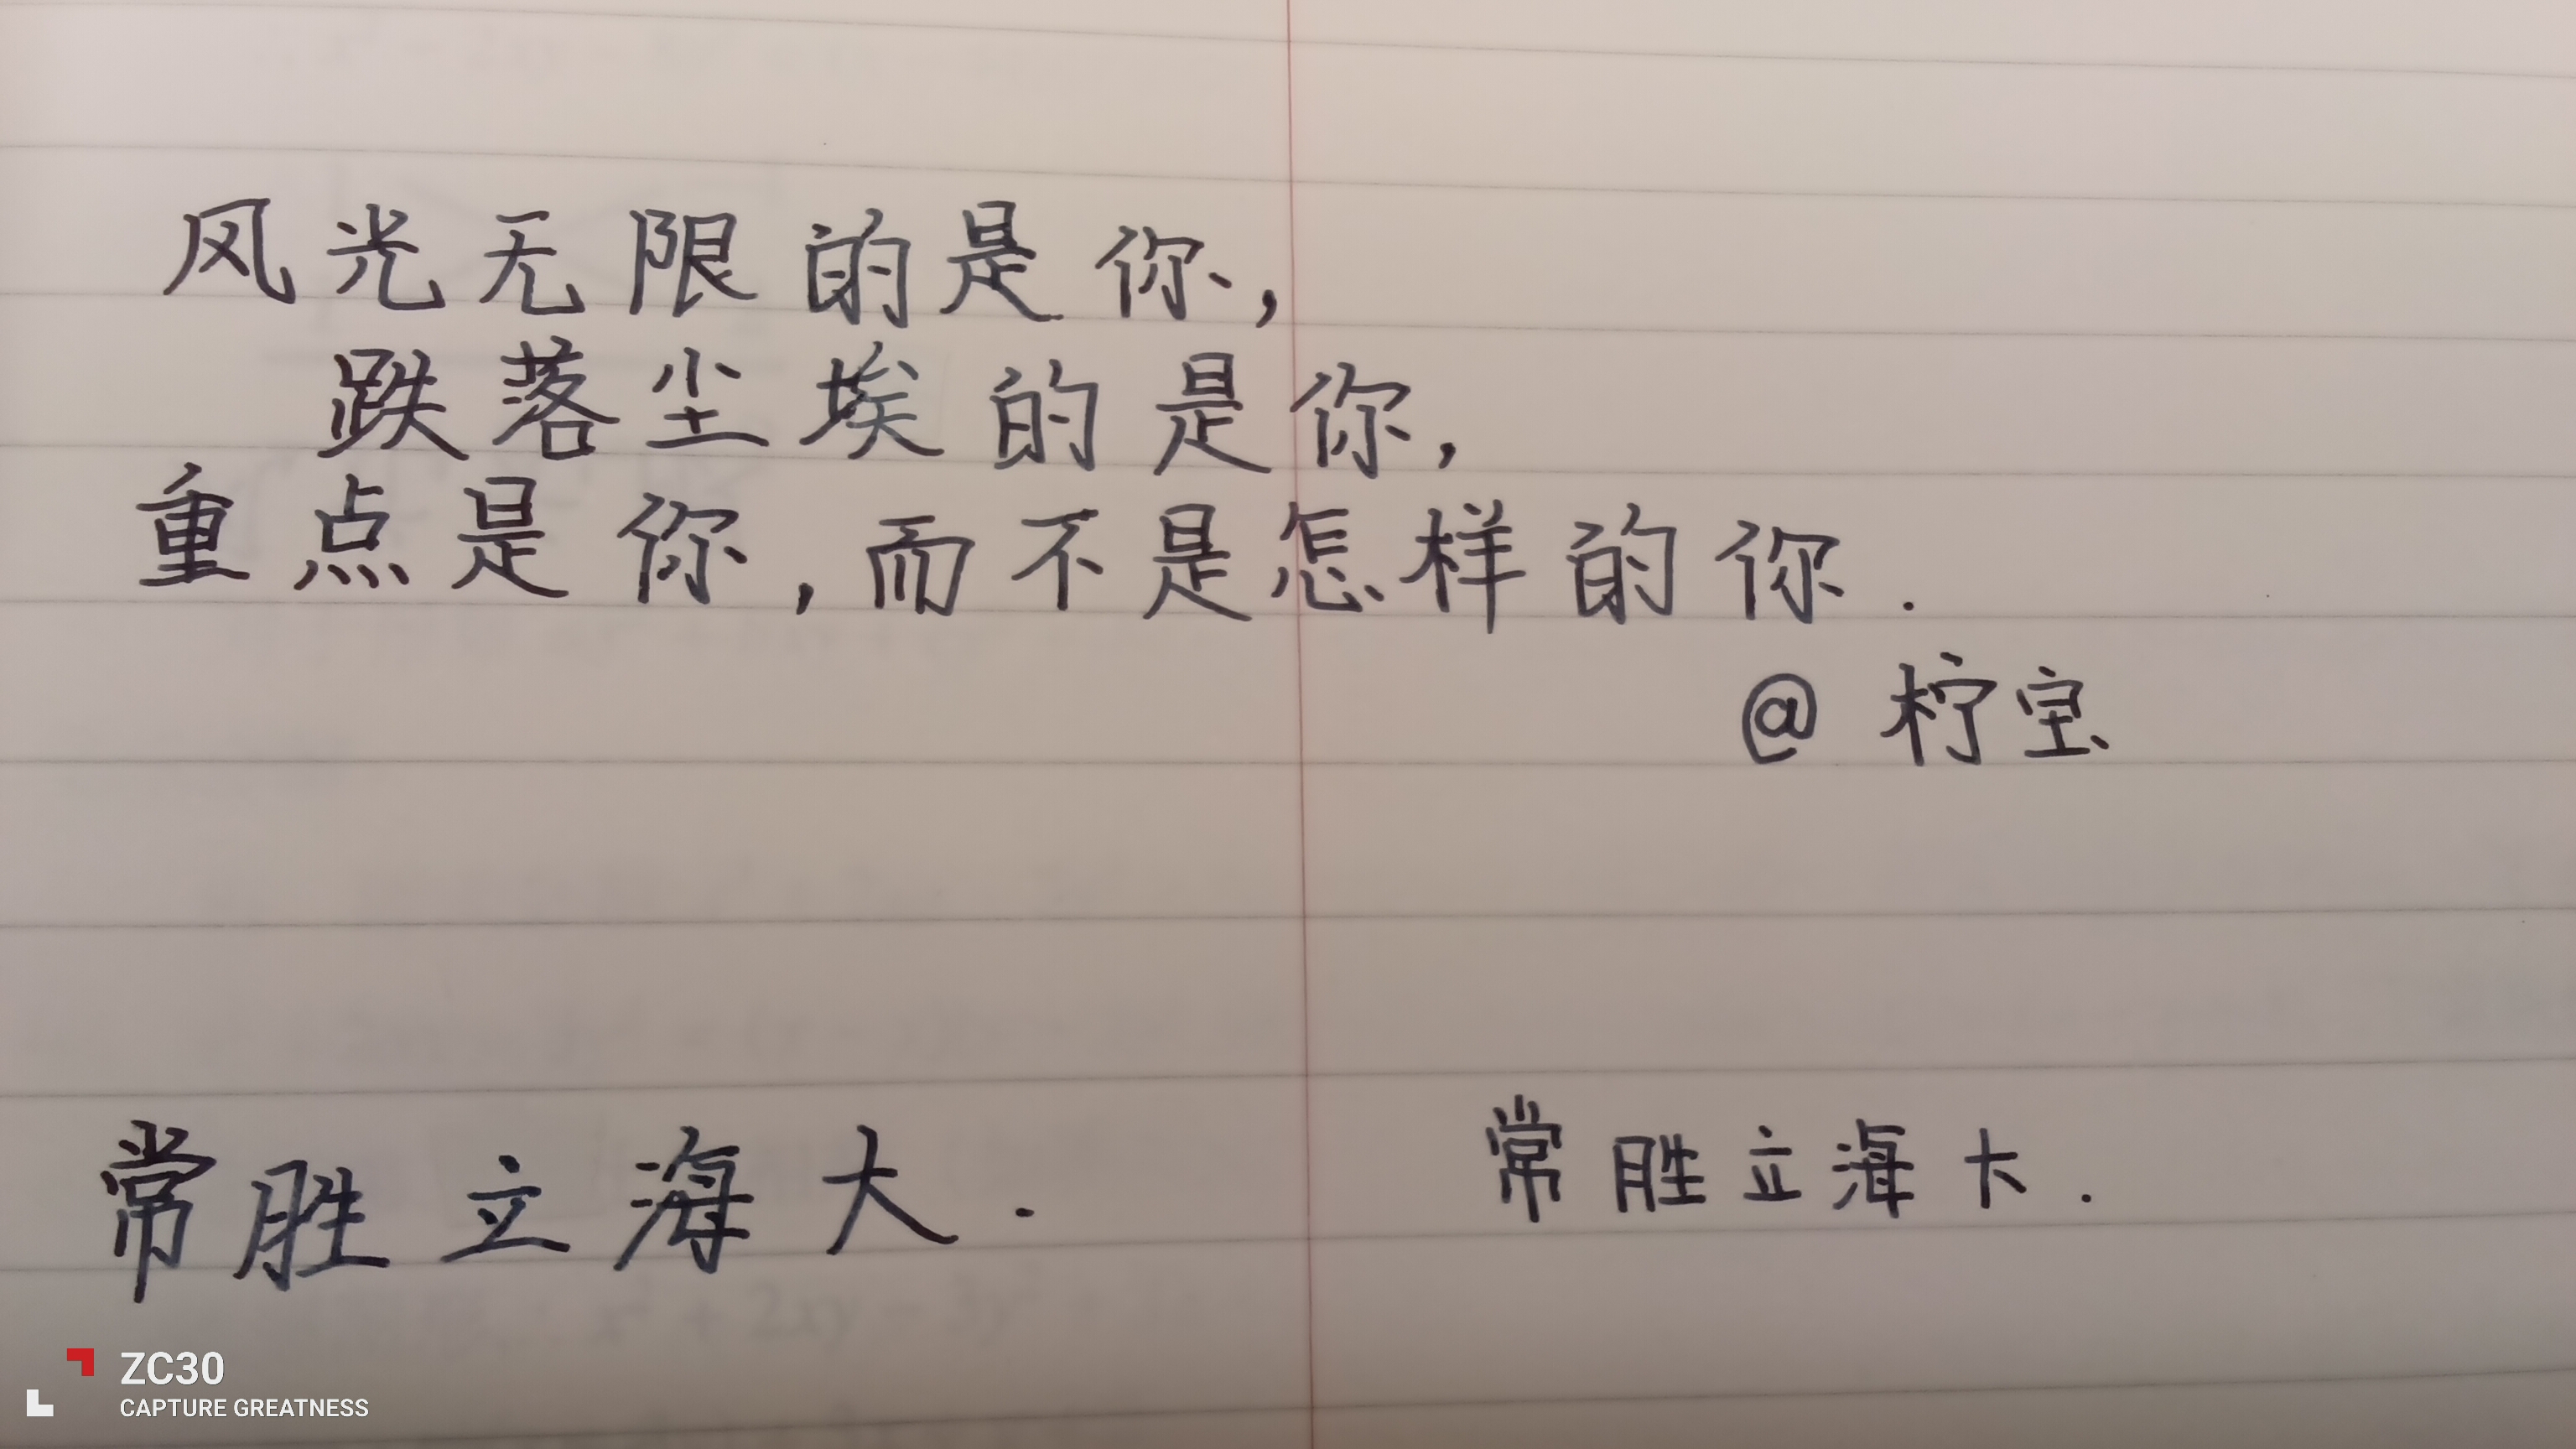 风光无限的是你,
跌落尘埃的是你,
重点是你,而不是怎样的你.
@ 柠宝
常胜立海大. 常胜立海大.
ZC30
CAPTURE GREATNESS